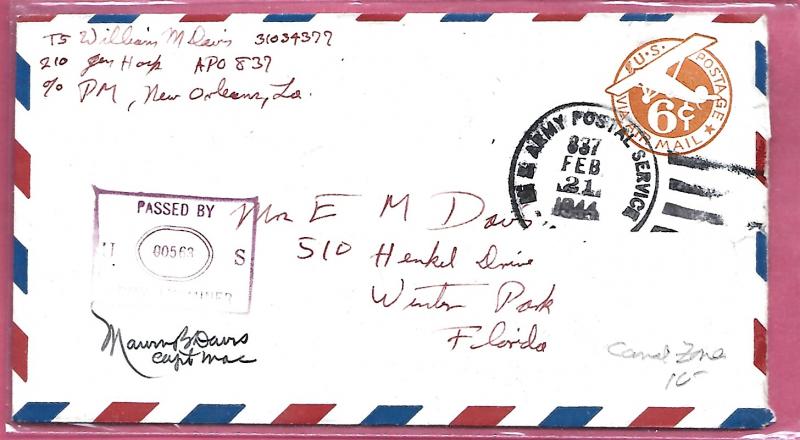 T5 William M Davis 31034377
210 Gen Hosp APO 837
c/o PM, New Orleans, La.
U.S. POSTAGE
VIA AIR MAIL
6¢
ARMY POSTAL SERVICE
837
FEB
21
1944
PASSED BY
U 00563 S
ARMY EXAMINER
Mrs E M Davis
510 Henkel Drive
Winter Park
Florida
B. Davis
Capt MAC
Canal Zone